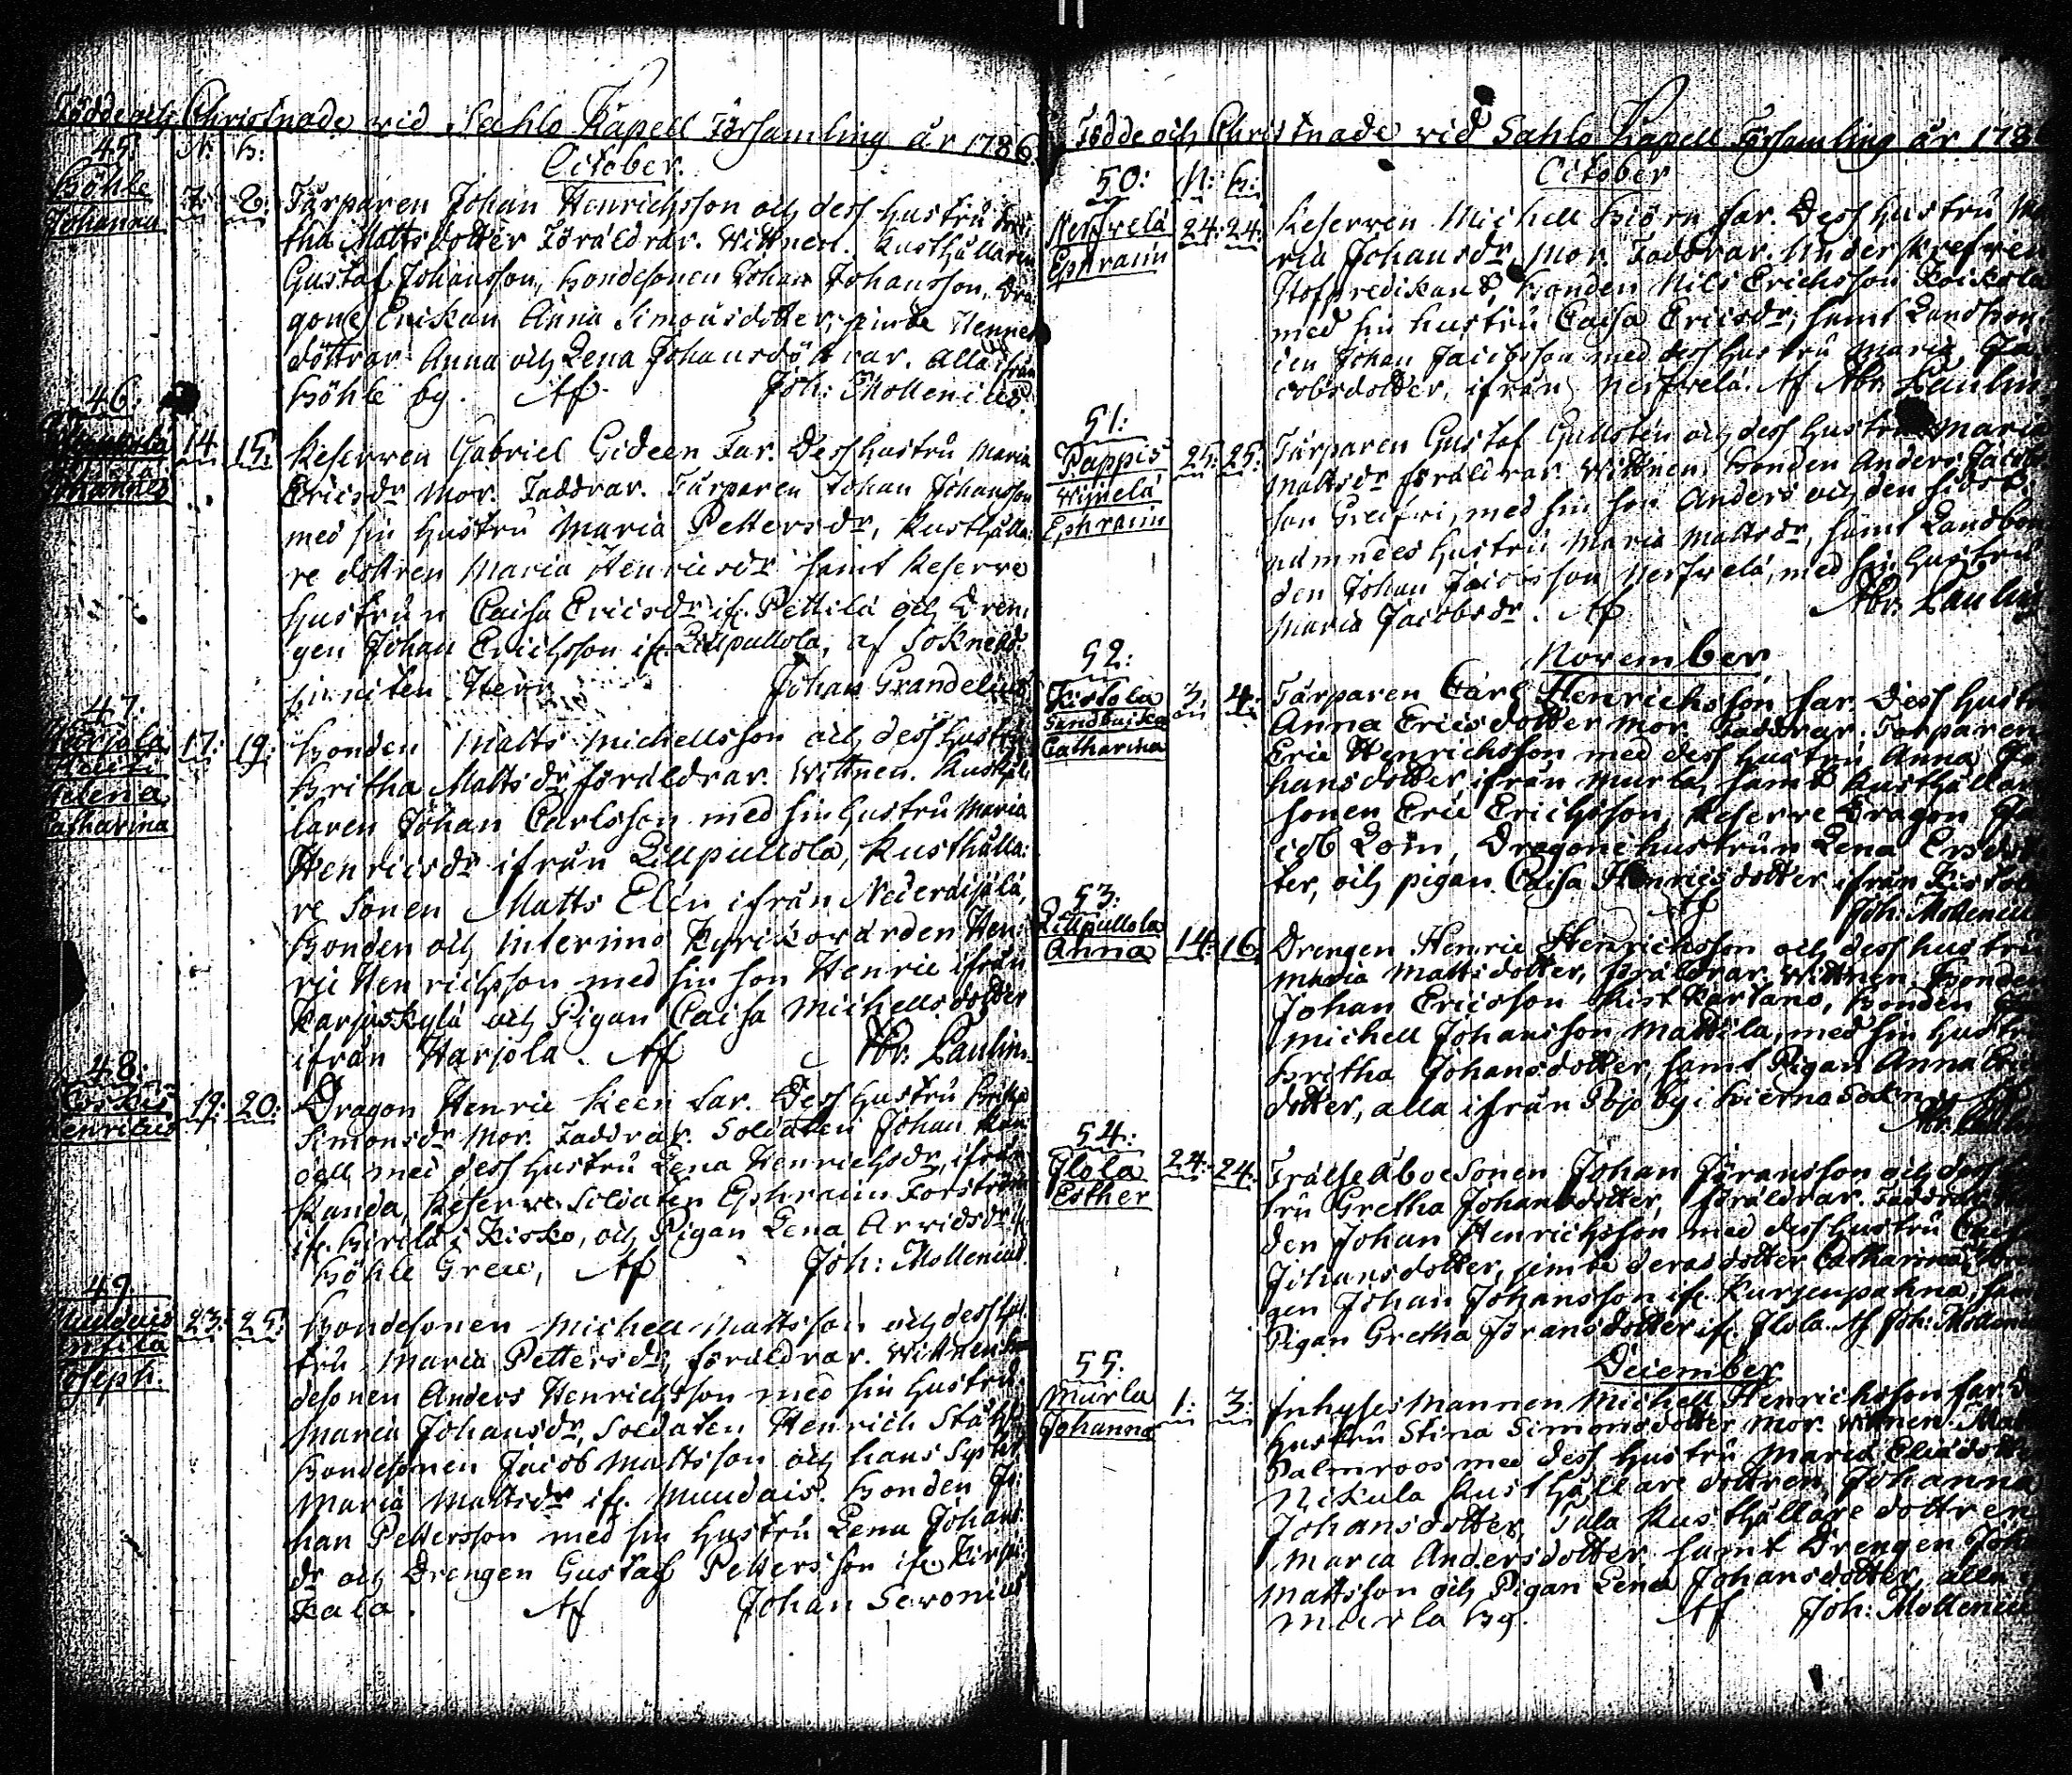 Födde och Christnade vid Sahlo Kapell Församling år 1786.
45. N: b:
October.
Böhle
Johanna
7. 8.
Tårparen Johan Henrichsson och dess hustru
tha Mattsdotter Föräldrar. Wittnen. Rusthållaren
Gustaf Johansson, bondesonen Johan Johansson, Dra
gone Enikan Anna Simonsdotter, samt Hennes
döttrar Anna och Lena Johansdöttrar. alla ifrån
Böhle by. Af Joh: Mollenius.
46.
Johannes
14. 15.
Reserven Gabriel Gideen Far. Dess hustru Maria
Ericsdr Mor. Faddrar. Tårparen Johan Johansson
med sin hustru Maria Pettersdr, Rusthålla:
re dottren Maria Henricsdr samt Reserve
hustrun Caisa Ericsdr if. Pettilä och Dren
gen Johan Erichsson if. Lillpullola, af Sokneads
Herr Johan Grandelius
47.
Harjola
Helena
Catharina
17. 19.
Bonden Matts Michellsson och dess hustru
Britha Mattsdr föräldrar. Wittnen. Rusthål
laren Johan Carlsson med sin hustru Maria
Henricsdr ifrån Lillpullola, Rusthålla:
re Sonen Matts Elin ifrån
Bonden och interims Kyrkovärden Hen:
ric Henrichsson med sin son Henric ifrån
Karjaskylä och Pigan Caisa Michellsdotter
ifrån Harjola. Af Abr: Laulin.
48.
Henricus
19. 20.
Dragon Henric Keen far. Dess hustru
Simonsdr Mor. Faddrar. Soldaten Johan
dell med dess hustru Lena Henrichsdr, ifrån
Kanda, Reserve Soldaten Ephraim Forström
if. Kirilä i Kisko, och Pigan Lena Arvidsdr
Böhle Af Joh: Mollenius.
49.
Joseph.
23. 25.
Bondesonen Michell Mattsson och dess hus
tru Maria Pettersdr, föräldrar. Wittnen
desonen Anders Henrichsson med sin hustru
Maria Johansdr, Soldaten Henrich Ståhl
Bondesonen Jacob Mattsson och hans Syster
Maria Mattsdr if. Muudais. Bonden Jo
han Pettersson med sin hustru Lena Johans
dr och Drengen Gustaf Pettersson if.
kala. Af Johan Seronius
Födde och Christnade vid Sahlo Kapell Församling år 178
50: N: b:
October
Nerfvelä
Ephraim
24. 24.
Reserven Michell Biörn far. Dess hustru Ma
ria Johansdr, Mor. Faddrar. Underskrefven
Hofpredikant, Bonden Nils Erichsson Koikola
med sin hustru Caisa Ericsdr, samt Landbon
den Johan Jacobsson med dess hustru Maria Ja
cobsdotter, ifrån Nerfvelä. Af Abr. Laulin
51:
Pappis
Ephraim
25. 25.
Tårparen Gustaf Gullsten och dess hustru Maria
Mattsdr föräldrar. Wittnen. Bonden Anders Jacobs
son med sin son Anders och den sidst
nämndes hustru Maria Mattsdr, samt Landbon
den Johan Jacobsson Nerfvelä, med sin hustru
Maria Jacobsdr. Af Abr. Laulin
November
52:
Kistola
Catharina
3. 4.
Tårparen Carl Henrichsson far. Dess hustru
Anna Ericsdotter mor. Faddrar. Torparen
Eric Henrichsson med dess hustru Anna Jo
hansdotter, ifrån Murla, samt Rusthållare
sonen Eric Erichsson, Reserve Dragon Ja
cob Dragonehustrun Lena
ter, och pigan Caisa Henricsdotter ifrån Kistola
Af Joh: Mollenius
53:
Lillpullola
Anna
14. 16.
Drengen Henric Henrichsson och dess hustru
Maria Mattsdotter, föräldrar. Wittnen. Bonden
Johan Ericsson Bonden
Michell Johansson Mattila, med sin hustru
Britha Johansdotter, samt Pigan Anna
dotter, alla ifrån Pojo by i Bierna Sokn. Af
Abr. Laulin
54:
Ilola
Esther
24. 24.
Frälse Åboe Sonen Johan Jöransson och dess
tru Gretha Johansdotter, föräldrar. Faddrar
den Johan Henrichsson med dess hustru
Johansdotter, samt deras dotter Catharina,
gen Johan Johansson if. Kurjenpahna, sam
Pigan Gretha Jöransdotter if. Ilola. Af Joh: Mollenius
December
55:
Murla
Johanna
1. 3.
Inhyses Mannen Michell Henrichsson far. D
hustru Stina Simonsdotter Mor. Wittnen.
Palmroos med dess hustru Maria Eliadotter
Nikula Rusthållare dottren, Johanna
Johansdotter, Tala Rusthållare dottren
Maria Andersdotter, samt Drengen Joh
Mattsson och Pigan Lena Johansdotter, alla
Murla by. Af Joh: Mollenius